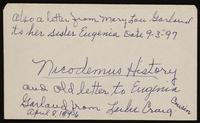 also a letter from Mary Lou Garland
to her sister Eugenia Date 9-3-97
Nicodemus History
and old letter to Eugenia
Garland from Lulu Craig Cousin
April 8, 1946